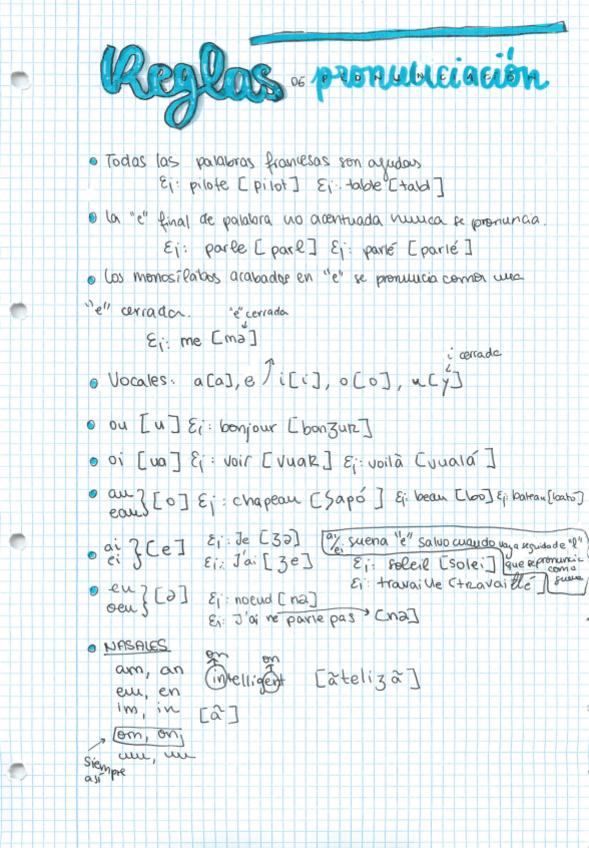 Reglas DE pronunciación
PRONUNCIACIÓN
• Todas las palabras francesas son agudas
Ej: pilote [pilot] Ej: table [tabl]
• la "e" final de palabra no acentuada nunca se pronuncia.
Ej: parle [parl] Ej: parlé [parlé]
• Los monosílabos acabados en "e" se pronuncia como una
"e" cerrada.
"e" cerrada
Ej: me [mə]
i cerrada
• Vocales: a[a], e ↗ i[i], o[o], u[y]
• ou [u] Ej: bonjour [bonʒuR]
• oi [ua] Ej: voir [vuaR] Ej: voilà [vualá]
• au
eau } [o] Ej: chapeau [Sapó] Ej: beau [bo] Ej: bateau [bató]
• ai
ei } [e] Ej: Je [ʒə] ai/ei suena "e" salvo cuando vaya seguida de "l"
Ej: J'ai [ʒe] Ej: soleil [solei] que se pronuncia como suena
• eu
oeu } [ə] Ej: travaille [travaillé]
Ej: noeud [nə]
Ej: J'ai ne parle pas → [nə]
• NASALES
an an
am, an intelligent [ãteliʒã]
em, en
im, in [ã]
om, on
um, un
Siempre
así